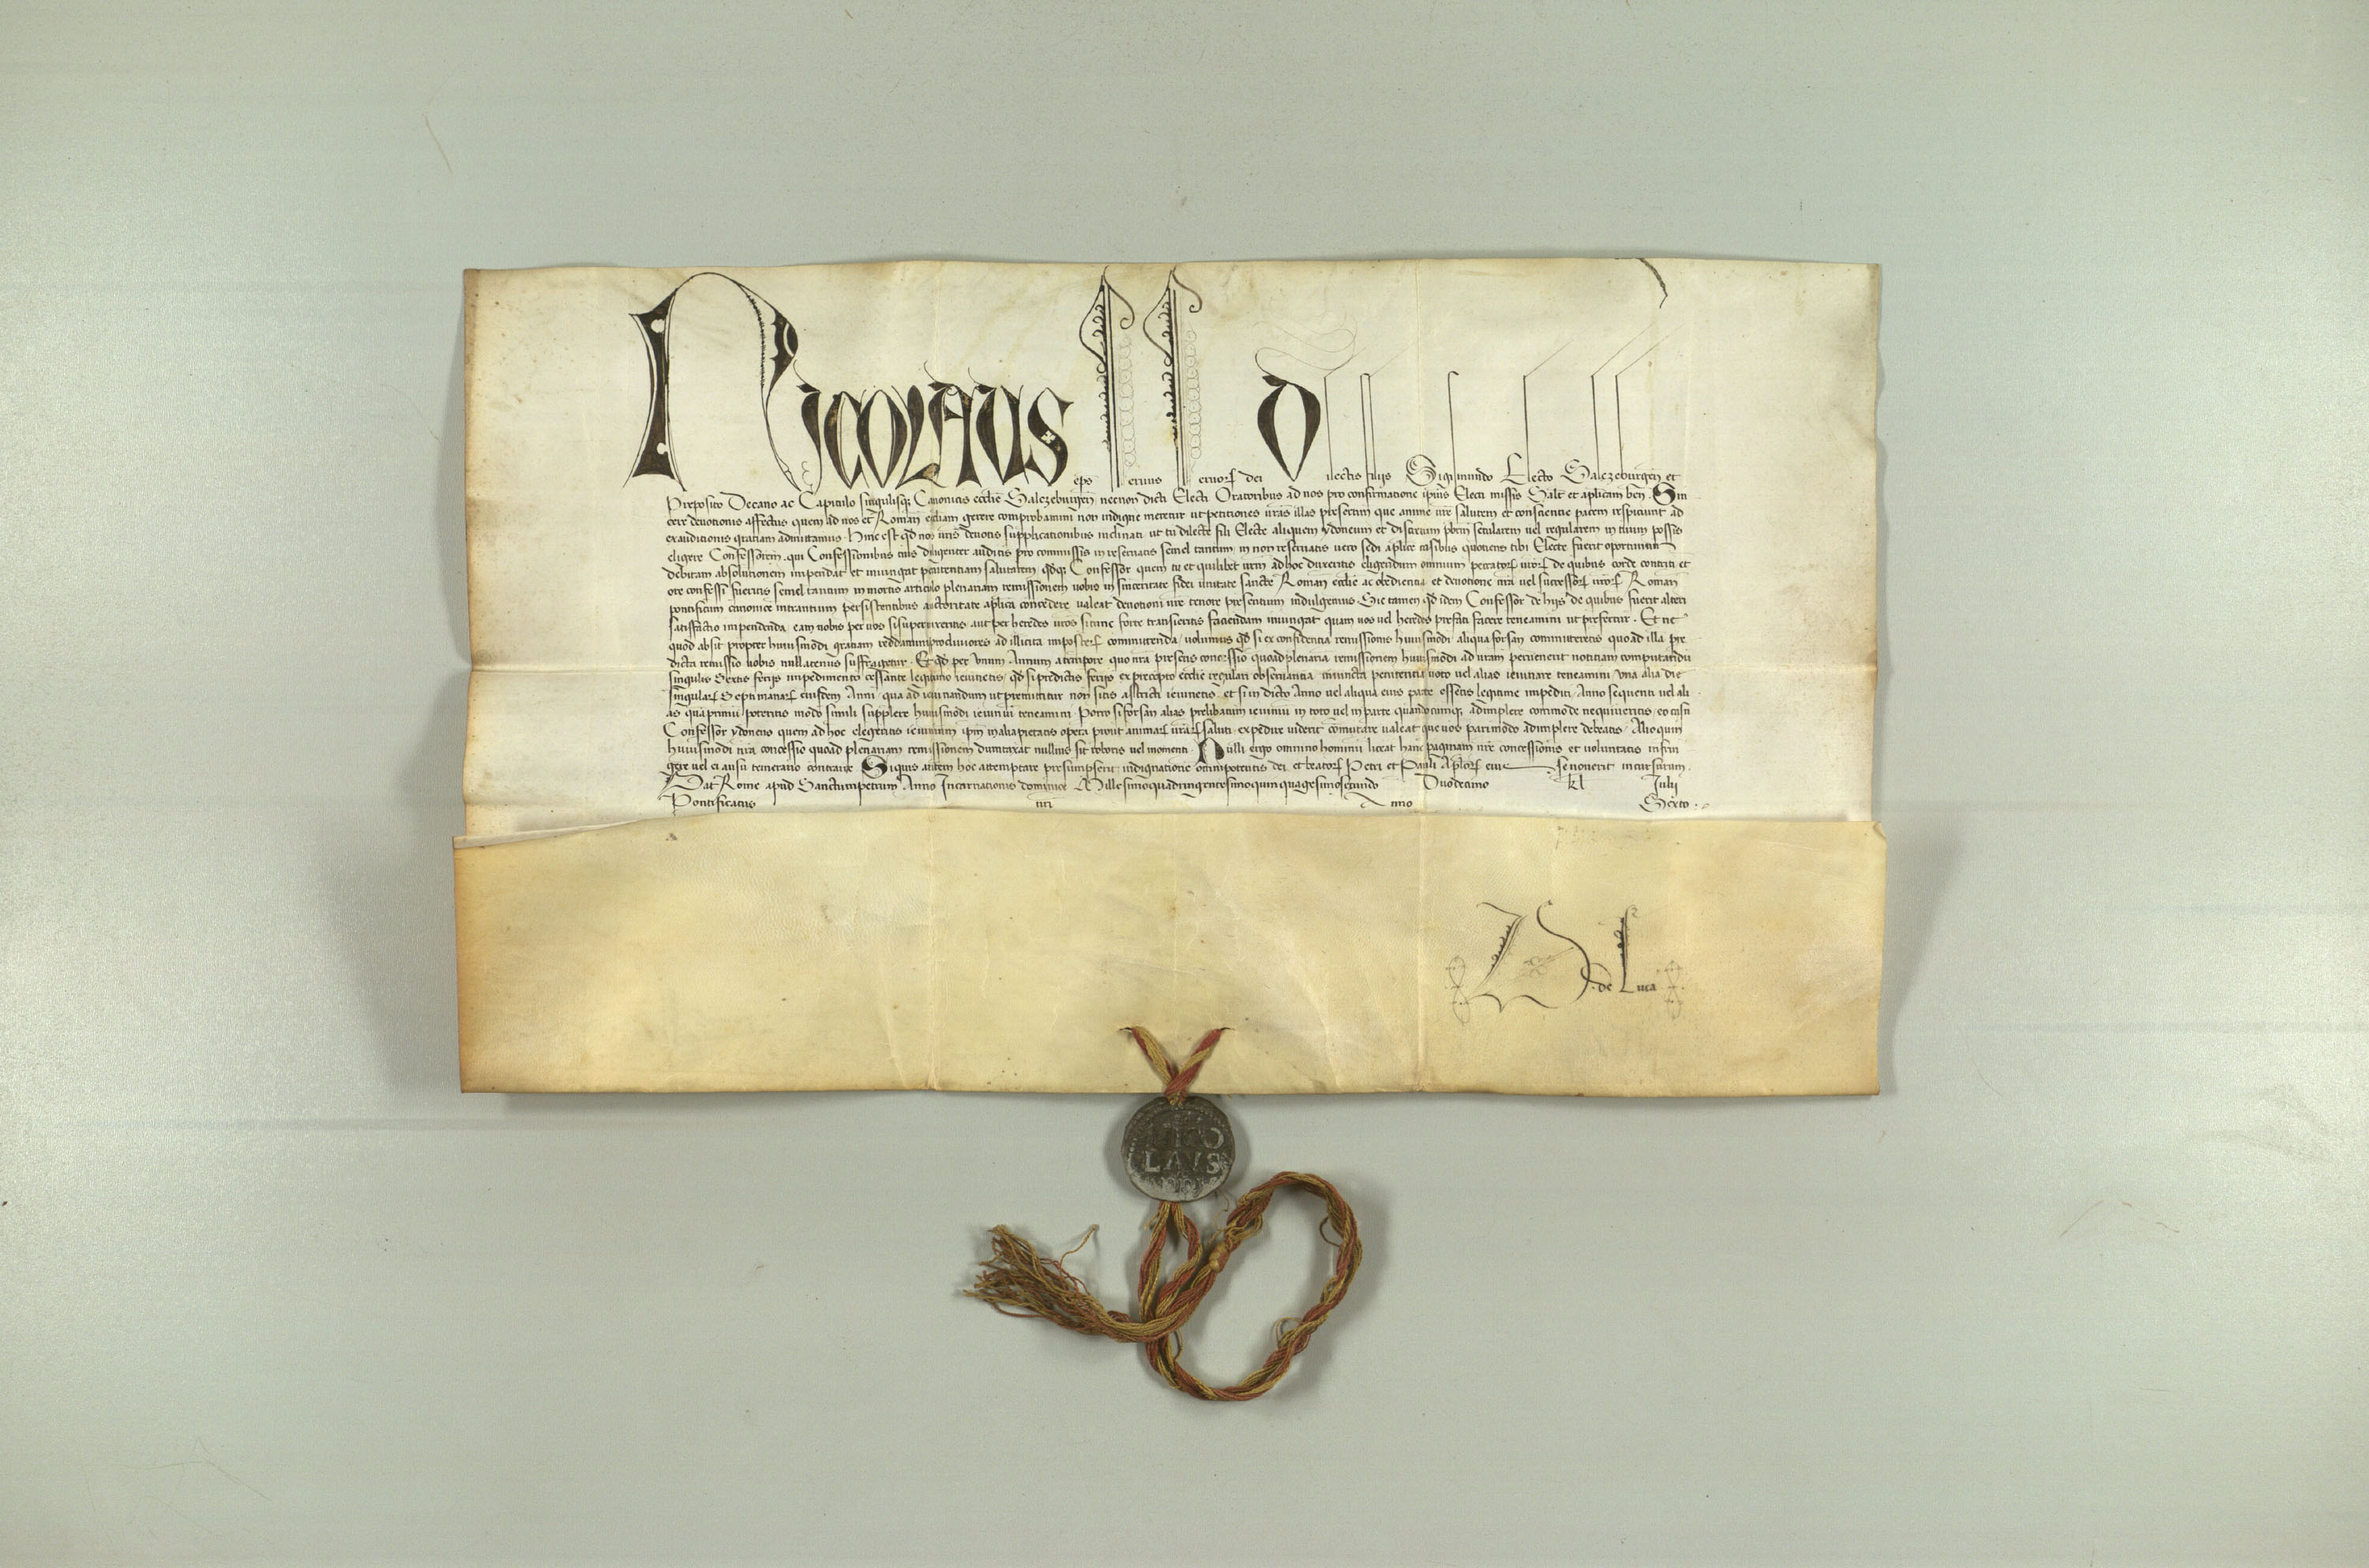 NICOLAUS eps Servus Servorꝝ dei Dilectis filijs Sigismundo Electo Salczeburgen̄ et
Preposito Decano ac Capitulo singulisqꝫ Canonicis ecclie Salczeburgen̄ necnon dicti Electi Oratoribus ad nos pro confirmatione ipius Electi missis Salt̄ et aplicam ben̄. Sin
cere devotionis affectus quem ad nos et Roman̄ ecliam gerere comprobamini non indigne meretur ut petitiones vr̄as illas presertim que anime vr̄e salutem et conscientie pacem respiciunt ad
exauditionis gratiam admittamus. Hinc est qd nos vr̄is devotis supplicationibus inclinati ut tu dilecte fili Electe aliquem ydoneum et discretum pbrm secularem vel regularem in tuum possis
eligere Confessorem. qui Confessionibus tuis diligenter auditis pro commissis in reservatis semel tantum in non reservatis vero sedi aplice casibus quotiens tibi Electe fuerit oportunum
debitam absolutionem impendat et iniungat penitentiam salutarem qdqꝫ Confessor quem tu et quilibet vrm ad hoc duxeritis eligendum omnium peccatorꝝ vrorꝝ de quibus corde contriti et
ore confessi fueritis semel tantum in mortis articulo plenariam remissionem vobis in sinceritate fidei unitate sancte Roman̄ ecclie ac obedientia et devotione nr̄a vel successorꝝ nrorꝝ Roman̄
pontificum canonice intrantium persistentibus auctoritate aplica concedere valeat devotioni vr̄e tenore presentium indulgemus Sic tamen qd idem Confessor de hijs de quibus fuerit alteri
satisfactio impendenda eam vobis per vos si supervixeritis aut per heredes vr̄os si tunc forte transieritis faciendam iniungat quam vos vel heredes prefati facere teneamini ut prefertur. Et ne
quod absit propter huiusmodi gratiam reddamini procliviores ad illicita imposterꝝ committenda volumus qd si ex confidentia remissionis huiusmodi aliqua forsan committeretis quoad illa pre
dicta remissio vobis nullatenus suffragetur. Et qd per Unum Annum a tempore quo nr̄a presens concessio quoad plenariā remissionem huiusmodi ad vr̄am pervenerit notitiam computandū
singulis Sextis ferijs impedimento cessante legitimo ieiunetis qd si predictis ferijs ex precepto ecclie regulari observantia iniuncta penitentia voto vel alias ieiunare teneamini Una alia die
singularꝝ Septimanarꝝ eiusdem Anni qua ad ieiunandum ut premittitur non sitis astricti ieiunetis et si in dicto Anno vel aliqua eius parte essetis legitime impediti Anno sequenti vel ali
as quāprimū poteritis modo simili supplere huiusmodi ieiuniū teneamini Porro si forsan alias prelibatum ieiuniū in toto vel in parte quandocumqꝫ adimplere commode nequiveritis eo casu
Confessor ydoneus quem ad hoc elegeritis ieiunium ipm in alia pietatis opera prout animarꝝ vr̄arꝝ saluti expedire viderit cōmutare valeat que vos pari modo adimplere debeatis Alioquin
huiusmodi nr̄a concessio quoad plenariam remissionem dumtaxat nullius sit roboris vel momenti. Nulli ergo omnino hominū liceat hanc paginam nr̄e concessionis et voluntatis infrin
gere vel ei ausu temerario contraire Siquis autem hoc attemptare presumpserit indignationē omnipotentis dei et beatorꝝ Petri et Pauli Aplorꝝ eius se noverit incursurum.
Dat Rome apud Sanctumpetrum Anno Incarnationis dominice Millesimoquadringentesimoquinquagesimosecundo Duodecimo kl Iulij
Pontificatus nri Anno Sexto.
de Luca
NICO
LAVS